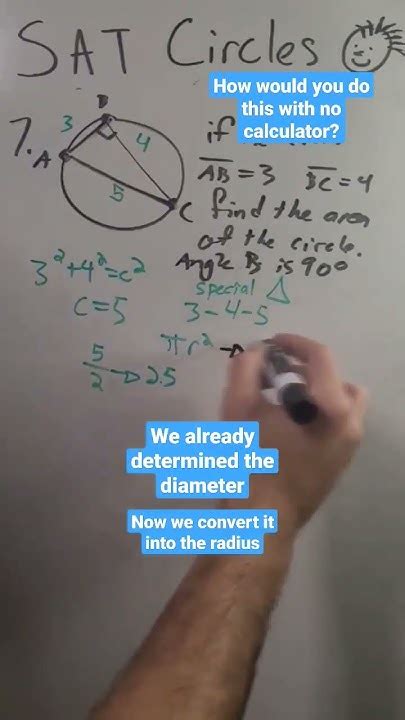 SAT Circles
How would you do
this with no
calculator?
7.
B
3
4
A
5
C
if
AB = 3 BC = 4
find the area
of the circle.
Angle B is 90°
3² + 4² = c²
c = 5
special △
3 - 4 - 5
5/2 → 2.5
πr² →
We already
determined the
diameter
Now we convert it
into the radius